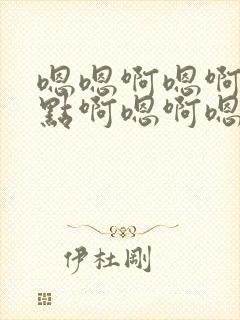 嗯嗯啊嗯啊
點啊嗯啊嗯
伊杜剛